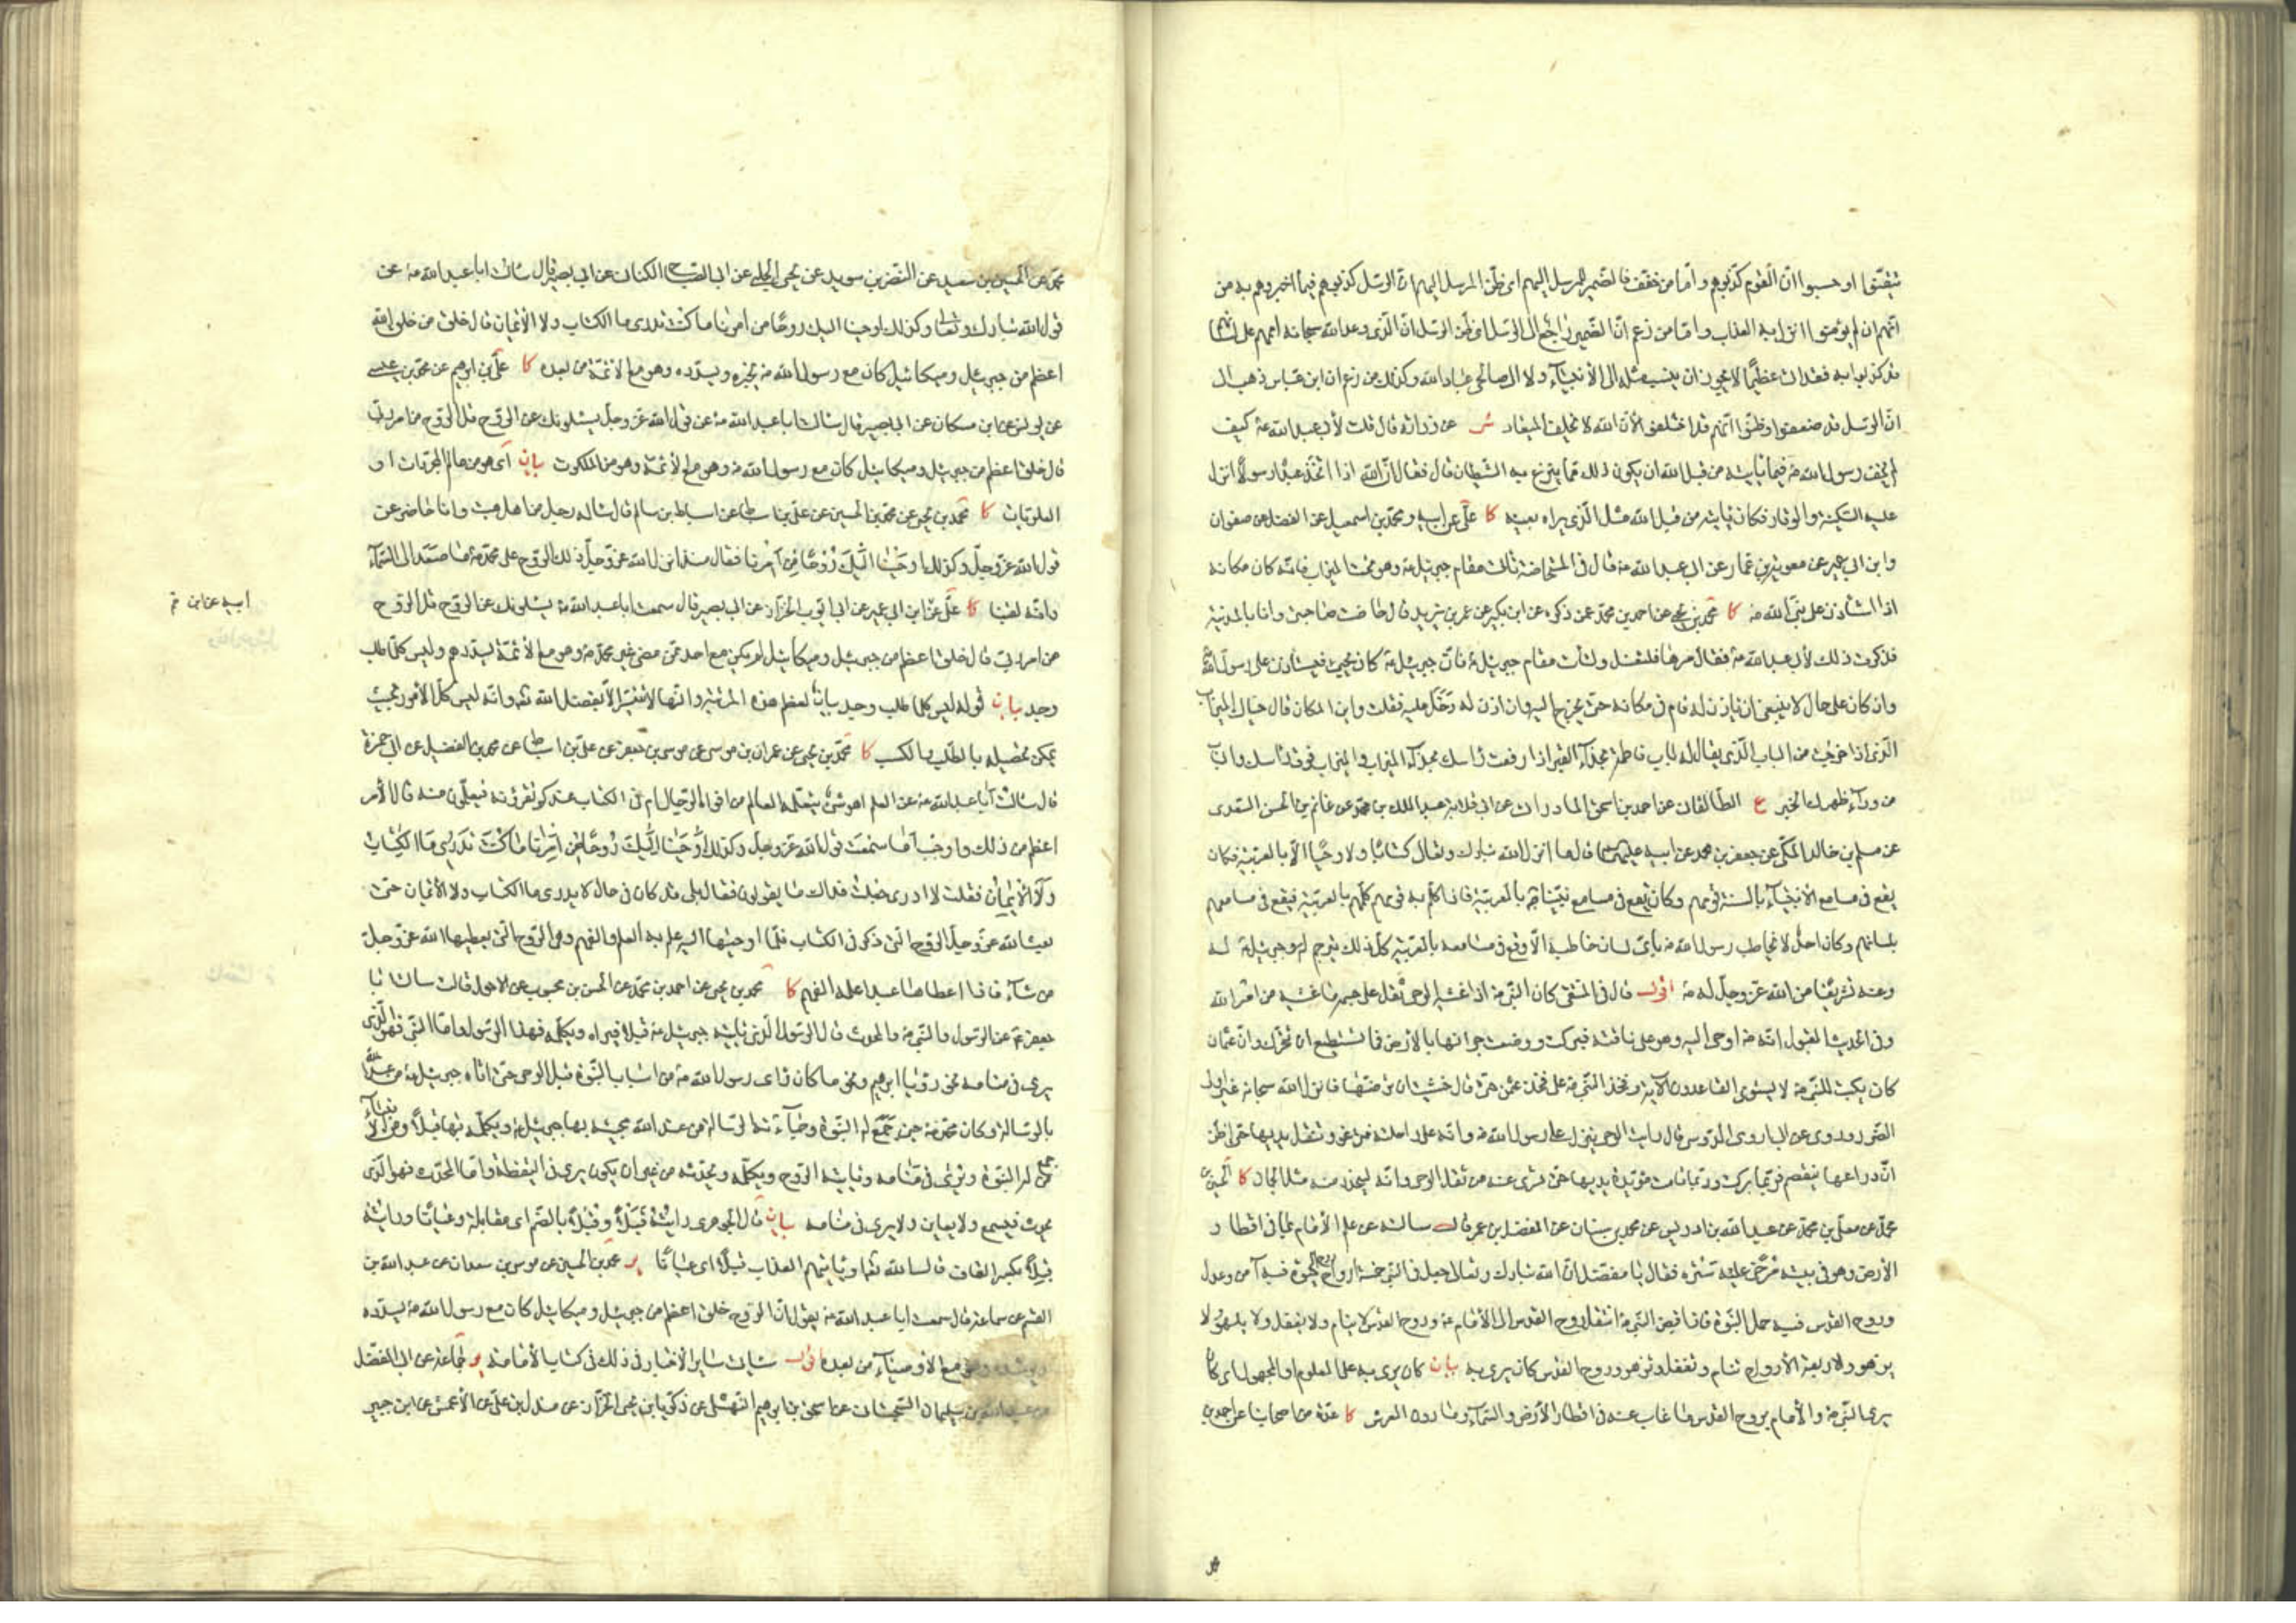 تيقنوا او حسبوا ان القوم كذبوهم و اما من خفف فالضمير للمرسل اليهم اى ظن المرسل اليهم ان الرسل كذبوهم فيما اخبروهم به من
انهم ان لم يؤمنوا انزل به العذاب و اما من زعم ان الضمير راجع الى الرسل اى ظن الرسل ان الذى وعد الله سبحانه اممهم على لسانهم
قد كذبوا به فقد اتى عظيما لا يجوز ان ينسب مثله الى الأنبياء ولا الى صالحى عباد الله وكذلك من زعم ان ابن عباس ذهب الى
ان الرسل قد ضعفوا وظنوا انهم قد اخلفوا لأن الله لا يخلف الميعاد ش عن زرارة قال قلت لأبى عبد الله ع كيف
لم يخف رسول الله ص فيما يأتيه من قبل الله ان يكون ذلك مما ينزغ به الشيطان قال فقال ان الله اذا اتخذ عبدا رسولا انزل
عليه السكينة والوقار فكان يأتيه من قبل الله مثل الذى يراه بعينه كا على عن ابيه و محمد بن اسمعيل عن الفضل عن صفوان
وابن ابى عمير عن معوية بن عمار عن ابى عبد الله ع قال فى المستحاضة تأتى مقام جبرئيل ع وهو تحت الميزاب فانه كان مكانه
اذا استأذن على نبى الله ص كا محمد بن يحيى عن احمد بن محمد عمن ذكره عن ابن بكير عن عمر بن يزيد قال حاضت صاحبتى وانا بالمدينة
فذكرت ذلك لأبى عبد الله ع فقال مرها فلتغتسل ولتأت مقام جبرئيل ع فان جبرئيل ع كان يجيئ فيستأذن على رسول الله
وان كان على حال لا ينبغى ان يأذن له قام فى مكانه حتى يخرج اليه وان اذن له دخل عليه فقلت واين المكان قال حيال الميزاب
الذى اذا خرجت من الباب الذى يقال له باب فاطمة بحذاء القبر اذا رفعت رأسك بحذاء الميزاب والميزاب فوق رأسك والباب
من وراء ظهرك الخبر ع الطالقانى عن احمد بن اسحق المادرانى عن ابى قلابة عبد الملك بن محمد عن غانم بن الحسن السعدى
عن مسلم بن خالد المكى عن جعفر بن محمد عن ابيه عليهما السلام قال ما انزل الله تبارك وتعالى كتابا ولا وحيا الا بالعربية فكان
يقع فى مسامع الأنبياء بالسنة قومهم وكان يقع فى مسامع نبينا ص بالعربية فاذا كلم به قومهم كلمهم بالعربية فيقع فى مسامعهم
بلسانهم وكان احد لا يخاطب رسول الله ص بأى لسان خاطبه الا وقع فى مسامعه بالعربية كل ذلك يترجم له جبرئيل ع له
وعنه تشريفا من الله عز وجل له ص اقول قال فى المنتقى كان النبى ص اذا غشيه الوحى ثقل على جسمه ما غشيه من امر الله
وفى الحديث المقبول انه ص اوحى اليه وهو على ناقته فبركت ووضعت جرانها بالأرض فما تستطيع ان تتحرك وان عثمان
كان يكتب للنبى ص لا يستوى القاعدون الآية وفخذ النبى ص على فخذ عثمن حتى قال خشيت ان ترضها فانزل الله سبحانه غير اولى
الضرر وروى عن ابى اروى الدوسى قال رأيت الوحى ينزل على رسول الله ص وانه على راحلته فترغو وتفتل يديها حتى اظن
ان ذراعها ينفصم فربما بركت وربما قامت موتدة يديها حتى تسرى عنه من ثقل الوحى وانه ليتحدر منه مثل الجمان كا الحسين بن
محمد عن معلى بن محمد عن عبد الله بن ادريس عن محمد بن سنان عن المفضل بن عمر قال سألته عن علم الأمام بما فى اقطار
الأرض وهو فى بيته مرخى عليه ستره فقال يا مفضل ان الله تبارك وتعالى جعل فى النبى خمسة ارواح روح الحيوة فبه
وروح القدس فبه حمل النبوة فاذا قبض النبى ص انتقل روح القدس الى الأمام ع وروح القدس لا ينام ولا يغفل ولا يلهو ولا
يزهو والاربعة الأرواح تنام وتغفل وتزهو وروح القدس كان يرى به بيان كان يرى به على المعلوم او المجهول اى كان
يرى النبى ص والأمام بروح القدس ما غاب عنه فى اقطار الأرض والسماء وما دون العرش كا عدة من اصحابنا عن احمد بن
محمد عن الحسين بن سعيد عن النضر بن سويد عن يحيى الحلبى عن ابى الصباح الكنانى عن ابى بصير قال سألت ابا عبد الله ع عن
قول الله تبارك وتعالى وكذلك اوحينا اليك روحا من امرنا ما كنت تدرى ما الكتاب ولا الأيمان قال خلق من خلق الله
اعظم من جبرئيل وميكائيل كان مع رسول الله ص يخبره ويسدده وهو مع الأئمة من بعده كا على بن ابرهيم عن محمد بن عيسى
عن يونس عن ابن مسكان عن ابى بصير قال سألت ابا عبد الله ع عن قول الله عز وجل يسئلونك عن الروح قل الروح من امر ربى
قال خلق اعظم من جبرئيل وميكائيل كان مع رسول الله ص وهو مع الأئمة وهو من الملكوت بيان اى هو من عالم المجردات او
العلويات كا محمد بن يحيى عن محمد بن الحسين عن على بن اسباط عن اسباط بن سالم قال سأله رجل من اهل هيت وانا حاضر عن
قول الله عز وجل وكذلك اوحينا اليك روحا من امرنا فقال منذ انزل الله عز وجل ذلك الروح على محمد ص ما صعد الى السماء
وانه لفينا كا على عن ابن ابى عمير عن ابى ايوب الخزاز عن ابى بصير قال سمعت ابا عبد الله ع يسئلونك عن الروح قل الروح
ابيه عن ابن م
من امر ربى قال خلق اعظم من جبرئيل وميكائيل لم يكن مع احد ممن مضى غير محمد ص وهو مع الأئمة يسددهم وليس كلما طلب
وجد بيان قوله ليس كلما طلب وجد بيان لعظم هذه المرتبة وانها لا تتيسر الا بفضل الله تع وانه ليس كل الأمور بحيث
يمكن تحصيله بالطلب والكسب كا محمد بن يحيى عن عمران بن موسى عن موسى بن جعفر عن على بن اسباط عن محمد بن الفضيل عن ابى حمزة
قال سألت ابا عبد الله ع عن العلم اهو شئ يتعلمه العالم من افواه الرجال ام فى الكتاب عندكم تقرؤنه فتعلمون منه قال الأمر
اعظم من ذلك واوجب اما سمعت قول الله عز وجل وكذلك اوحينا اليك روحا من امرنا ما كنت تدرى ما الكتاب
ولا الأيمان فقلت لا ادرى جعلت فداك ما يقولون فقال بلى قد كان فى حال لا يدرى ما الكتاب ولا الأيمان حتى
بعث الله عز وجل الروح التى ذكر فى الكتاب فلما اوحيها اليه علم به العلم والفهم وهى الروح التى يعطيها الله عز وجل
من شاء فاذا اعطاها عبدا علمه الفهم كا محمد بن يحيى عن احمد بن محمد عن الحسن بن محبوب عن الاحول قال سألت ابا
جعفر ع عن الرسول والنبى ص والمحدث قال الرسول الذى يأتيه جبرئيل ع قبلا فيراه ويكلمه فهذا الرسول واما النبى فهو الذى
يرى فى منامه نحو رؤيا ابرهيم ونحو ما كان رأى رسول الله ص من اسباب النبوة قبل الوحى حتى اتاه جبرئيل ع من عند الله
بالرسالة وكان محمد ص حين جمع له النبوة وجاءته الرسالة من عند الله يجيئه بها جبرئيل ع ويكلمه بها قبلا ومن الأنبياء
من جمع له النبوة ويرى فى منامه ويأتيه الروح ويكلمه ويحدثه من غير ان يكون يرى فى اليقظة واما المحدث فهو الذى
يحدث فيسمع ولا يعاين ولا يرى فى منامه بيان قال الجوهرى رأيته قبلا وقبلا بالضم اى مقابلة وعيانا ورأيته
قبلا بكسر القاف قال الله تعا او يأتيهم العذاب قبلا اى عيانا ير محمد بن الحسين عن موسى بن سعدان عن عبد الله بن
القسم عن سماعة قال سمعت ابا عبد الله ع يقول ان الروح خلق اعظم من جبرئيل وميكائيل كان مع رسول الله ص يسدده
ويرشده وهو مع الأوصياء من بعده اقول سيأتى سائر الأخبار فى ذلك فى كتاب الأمامة جماعة عن ابى المفضل
بن سليمان السجستانى عن اسحق بن ابرهيم النهشلى عن زكريا بن يحيى الخزاز عن مندل بن على عن الأعمش عن ابن جبير